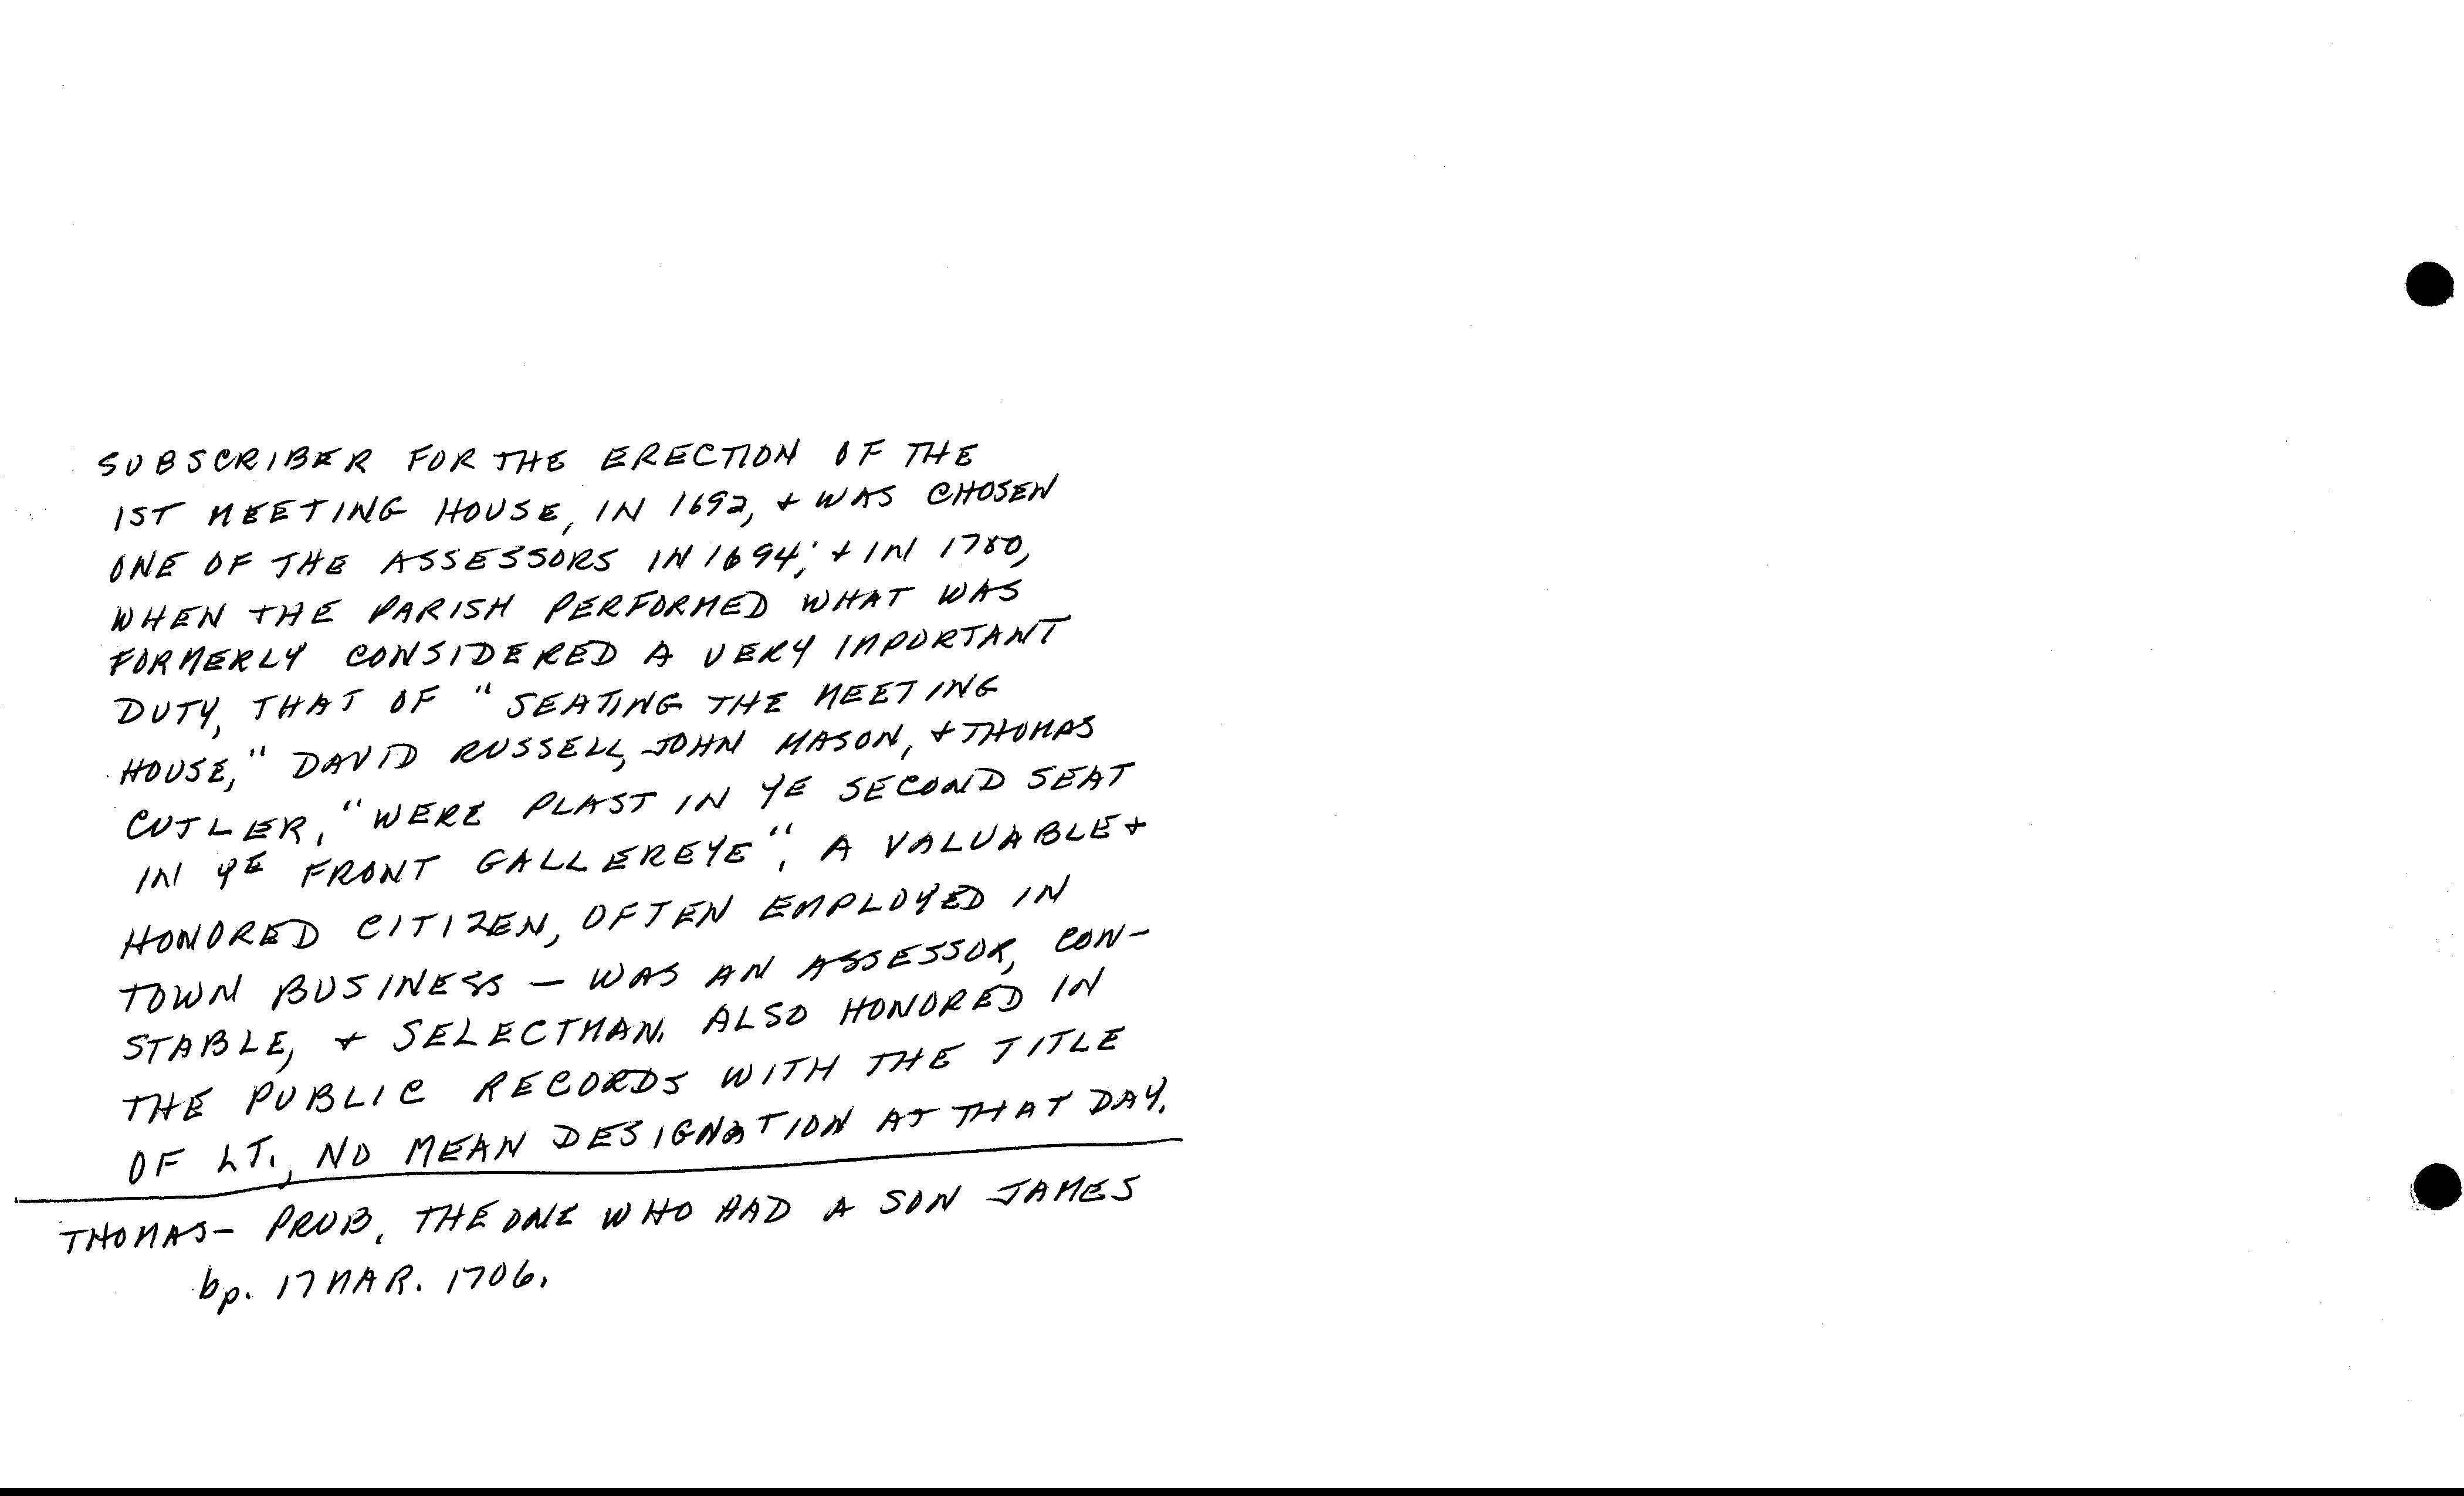 SUBSCRIBER FOR THE ERECTION OF THE
1ST MEETING HOUSE, IN 1692, + WAS CHOSEN
ONE OF THE ASSESSORS IN 1694; + IN 1700,
WHEN THE PARISH PERFORMED WHAT WAS
FORMERLY CONSIDERED A VERY IMPORTANT
DUTY, THAT OF "SEATING THE MEETING
HOUSE," DAVID RUSSELL, JOHN MASON, + THOMAS
CUTLER, "WERE PLAST IN YE SECOND SEAT
IN YE FRONT GALLEREYE", A VALUABLE +
HONORED CITIZEN, OFTEN EMPLOYED IN
TOWN BUSINESS — WAS AN ASSESSOR, CON-
STABLE, + SELECTMAN. ALSO HONORED IN
THE PUBLIC RECORDS WITH THE TITLE
OF LT., NO MEAN DESIGNATION AT THAT DAY.
THOMAS - PROB. THE ONE WHO HAD A SON JAMES
bp. 17 MAR. 1706.